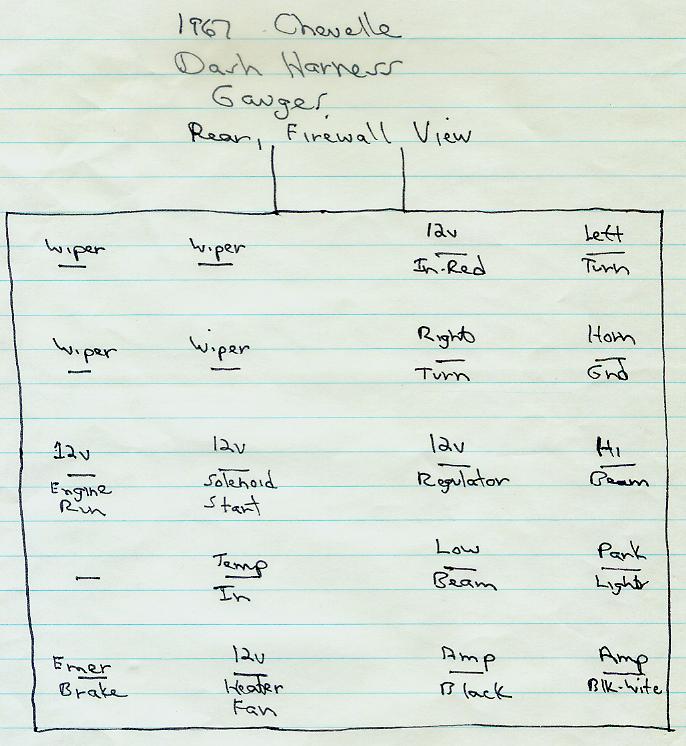 1967 Chevelle
Dash Harness
Gauges
Rear, Firewall View
Wiper Wiper 12v Left
In-Red Turn
Wiper Wiper Right Horn
Turn Gnd
12v 12v 12v Hi
Engine Solenoid Regulator Beam
Run Start
Temp Low Park
In Beam Lights
Emer 12v Amp Amp
Brake Heater Black Blk-Wite
Fan